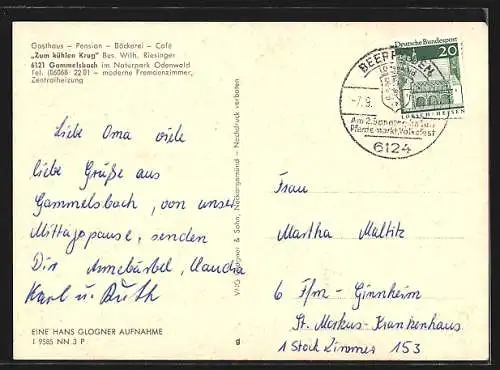 Gasthaus – Pension – Bäckerei – Café
„Zum kühlen Krug" Bes. Wilh. Riesinger
6121 Gammelsbach im Naturpark Odenwald
Tel. (06068 · 22 01 – moderne Fremdenzimmer,
Zentralheizung
Liebe Oma viele
liebe Grüße aus
Gammelsbach, von unser
Mittagspause, senden
Dir Annebärbel, Claudia
Karl u. Ruth
EINE HANS GLOGNER AUFNAHME
I 9585 NN 3 P
g
& Sohn, Neckargemünd – Nachdruck verboten
Deutsche Bundespost
20
LORSCH/HESSEN
BEERFELDEN
-7.9.
Pferdemarkt, Volksfest
6124
Frau
Martha Maltitz
6 F/m – Ginnheim
St. Markus-Krankenhaus
1 Stock Zimmer 153